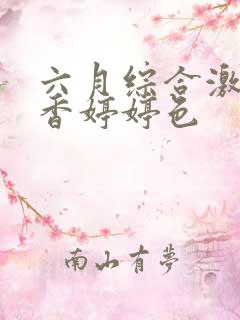 六月综合激
香婷婷色
南山有夢